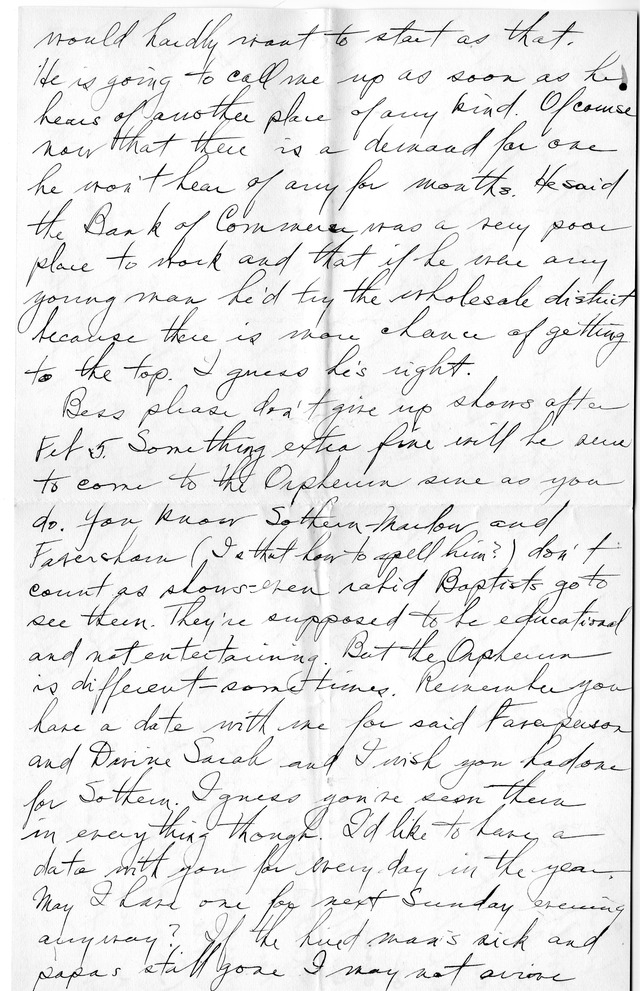 would hardly want to start as that.
He is going to call me up as soon as he
hears of another place of any kind. Of course
now that there is a demand for one
he won't hear of any for months. He said
the Bank of Commerce was a very poor
place to work and that if he were any
young man he'd try the wholesale district
because there is more chance of getting
to the top. I guess he's right.
Bess please don't give up shows after
Feb 5. Something extra fine will be sure
to come to the Orpheum sure as you
do. You know Sothern-Marlow and
Faversham (Is that how to spell him?) don't
count as shows-even rabid Baptists go to
see them. They're supposed to be educational
and not entertaining. But the Orpheum
is different-sometimes. Remember you
have a date with me for said Faverperson
and Divine Sarah and I wish you had one
for Sothern. I guess you've seen them
in everything though. I'd like to have a
date with you for every day in the year.
May I have one for next Sunday evening
anyway? If the hired man's sick and
papa's still gone I may not arrive